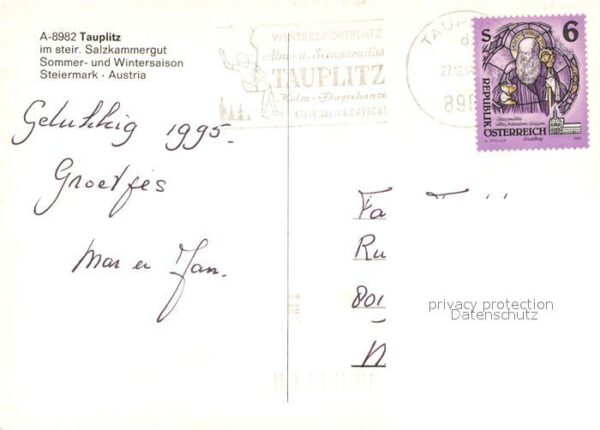 A-8982 Tauplitz
im steir. Salzkammergut
Sommer- und Wintersaison
Steiermark - Austria
WINTERSPORTPLATZ
Alm- u. Seenparadies
TAUPLITZ
Kulm-Flugschanze
STEIR. SALZKAMMERGUT
S 6
REPUBLIK
ÖSTERREICH
Gelukkig 1995.
Groetjes
Mar en Jan.
Fa
Ru
801
N
privacy protection
Datenschutz